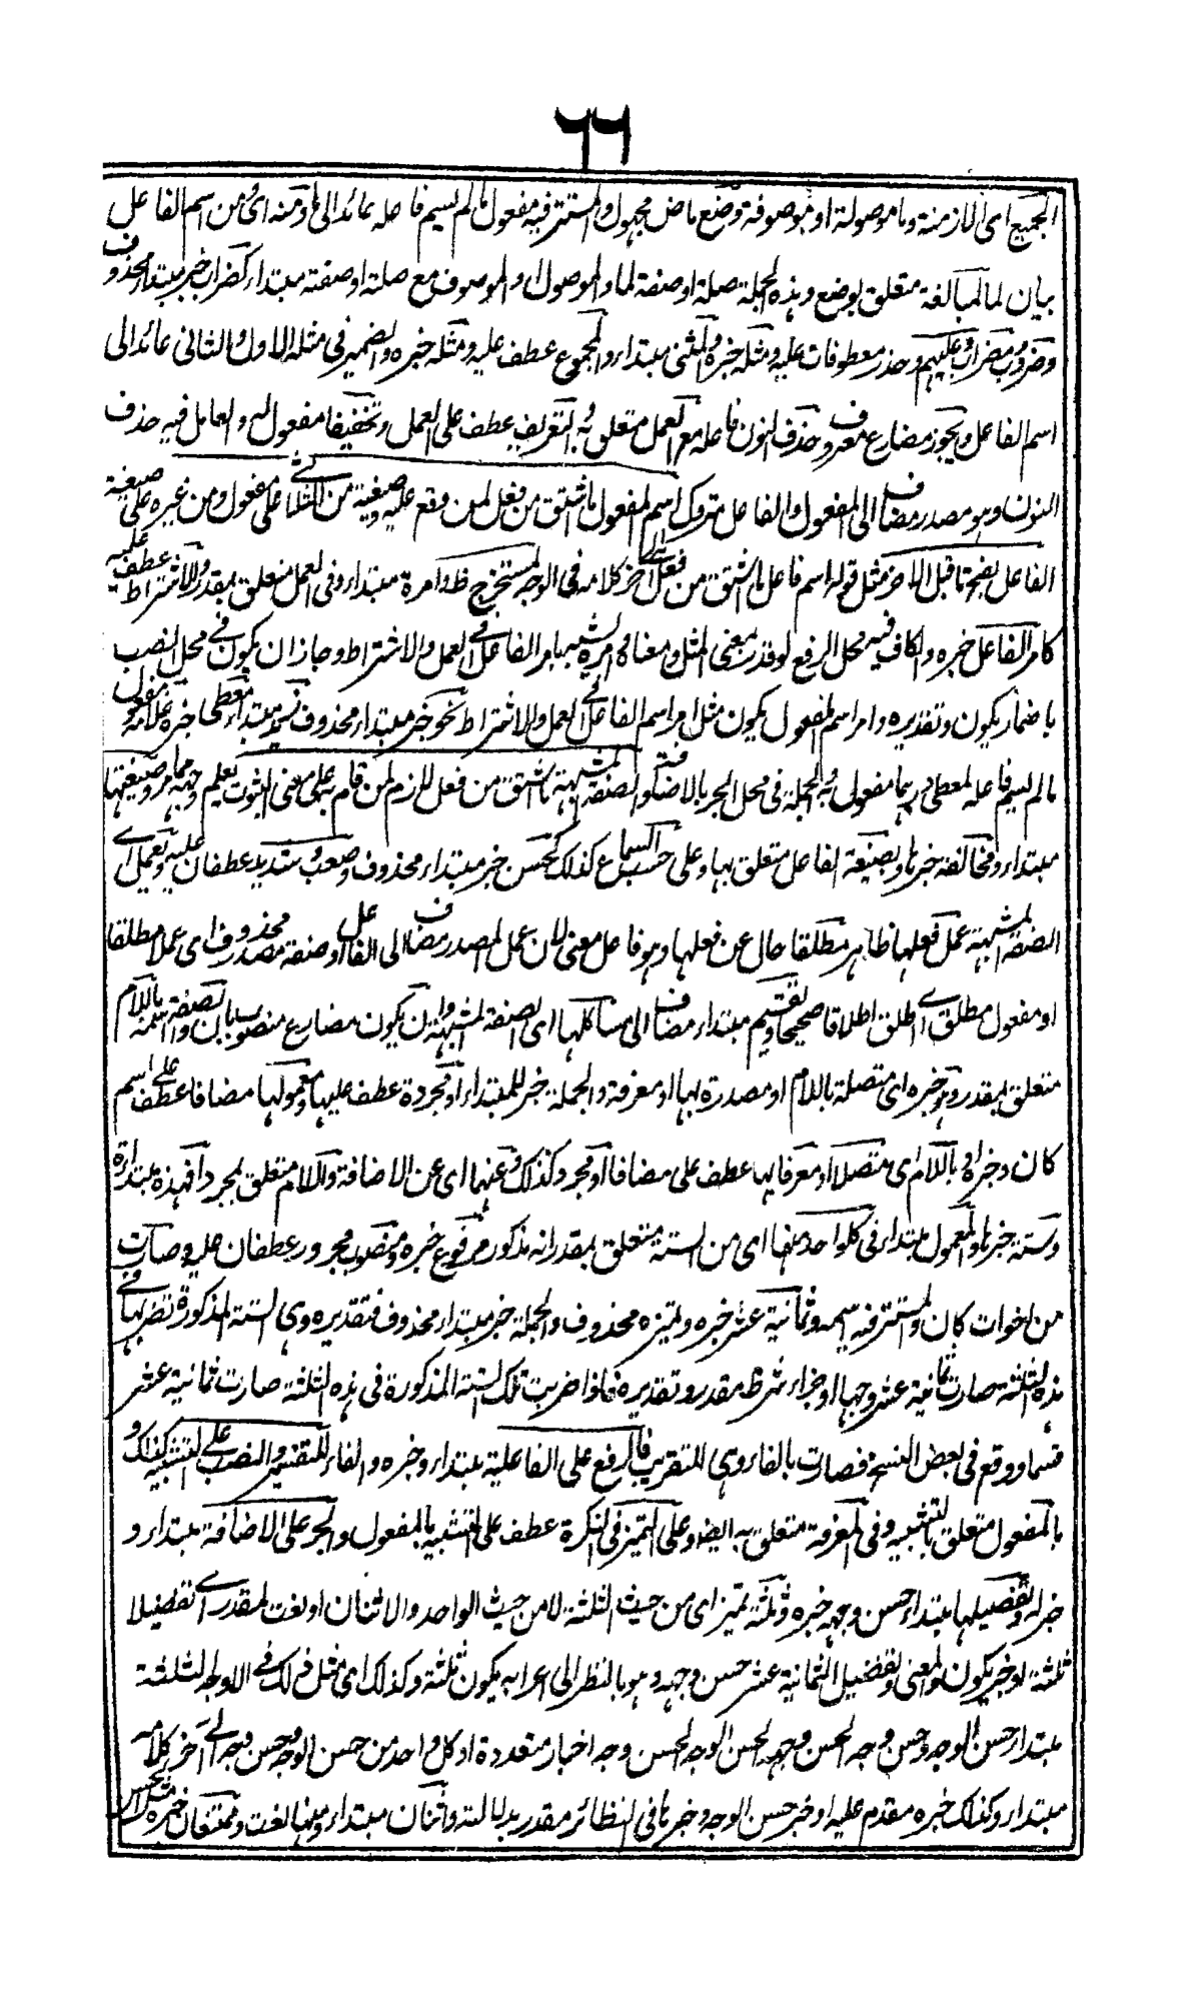 ٦٦
الجميع اى الازمنة وما موصولة او موصوفة وضع ماض مجهول والمستتر فيه مفعول ما لم يسم فاعله عائد الى ما ومنه اى ومن اسم الفاعل
بيان لما للمبالغة متعلق بوضع وهذه الجملة صلة او صفة لما والموصول او الموصوف مع صلته او صفته مبتداء كضراب خبر مبتداء محذوف
وضروب ومضراب وعليم وحذر معطوفات عليه ومثله خبره والمثنى مبتداء والمجموع عطف عليه ومثله خبره والضمير فى مثله الاول والثانى عائد الى
اسم الفاعل ويجوز مضارع معروف وحذف النون فاعله مع العمل متعلق به والتعريف عطف على العمل وتخفيفا مفعول له والعامل فيه حذف
النون وهو مصدر مضاف الى المفعول والفاعل متروك اسم المفعول ما اشتق من فعل لمن وقع عليه وصيغته من الثلاثى على مفعول ومن غيره على صيغة
الفاعل بفتح ما قبل الاخر مثل قوله اسم فاعل ما اشتق من فعل الى اخر كلامه فى الوجه المستخرج ظ وامره مبتداء وفى العمل متعلق بمقدر والاشتراط عطف عليه
كامر الفاعل خبره والكاف فيه محل الرفع لو قدر بمعنى المثل ومعناه امره شبيه بامر الفاعل فى العمل والاشتراط وجاز ان يكون فى محل النصب
باضمار يكون وتقديره وامر اسم المفعول يكون مثل امر اسم الفاعل فى العمل والاشتراط نحو خبر مبتداء محذوف زيد مبتداء معطى خبره غلامه مفعول
ما لم يسم فاعله لمعطى درهما مفعول به والجملة فى محل الجر بالاضافة الصفة المشبهة ما اشتق من فعل لازم لمن قام به على معنى الثبوت يعلم وجهه مما مر وصيغتها
مبتداء ومخالفة خبرها وبصيغة الفاعل متعلق بها وعلى حسب السماع كذلك كحسن خبر مبتداء محذوف وصعب وشديد عطفان عليه وتعمل اى
الصفة المشبهة عمل فعلها ظاهر مطلقا حال عن فعلها وهو فاعل معنى لان عمل المصدر مضاف الى الفاعل او صفة مصدر محذوف اى عملا مطلقا
او مفعول مطلق اى اطلق اطلاقا صحيحا وتقسيم مبتداء مضاف الى مسائلها اى الصفة المشبهة وان يكون مضارع منصوب بان والصفة اسمه باللام
متعلق بمقدر وهو خبره اى متصلة باللام او مصدرة بها او معرفة والجملة خبر للمبتداء او مجردة عطف عليها ومعمولها مضافا عطف على اسم
كان وخبره او باللام اى متصلا او معرفا بها عطف على مضافا او مجردا كذلك وعنهما اى عن الاضافة واللام متعلق بمجردا فهذه مبتداء
وستة خبرها والمعمول مبتداء فى كل واحد منها اى من الستة متعلق بمقدر انه مذكور مرفوع خبره ومنصوب ومجرور عطفان عليه وصارت
من اخوات كان والمستتر فيه اسمه وثمانية عشر خبره وتميزه محذوف والجملة خبر مبتداء محذوف فتقديره وهى الستة المذكورة تضربها فى
هذه الثلثة صارت ثمانية عشر وجها او جزاء شرط مقدر وتقديره فاذا ضربت تلك الستة المذكورة فى هذه الثلثة صارت ثمانية عشر
قسما ووقع فى بعض النسخ فصارت بالفاء وهى للتقريب فالرفع على الفاعلية مبتداء وخبره والفاء للتفسير والنصب على التشبيه كذلك و
بالمفعول متعلق بالتشبيه وفى المعرفة متعلق به ايضا وعلى التميز فى النكرة عطف على التشبيه بالمفعول والجر على الاضافة مبتداء و
خبر له وتفصيلها مبتداء حسن وجهه خبره وثلثة تميز اى من حيث الثلثة لا من حيث الواحد والاثنان او نعت لمقدر اى تفصيلا
ثلثة او خبر يكون والمعنى وتفضيل الثمانية عشر حسن وجهه وهو بالنظر الى اعرابه يكون ثلثة وكذلك اى مثل ذلك فى الاوجه الثلثة
مبتداء حسن الوجه وحسن وجه الحسن وجهه الحسن الوجه الحسن وجه اخبار متعددة او كل واحد من حسن الوجه وحسن وجه الى اخر كلامه
مبتداء وكذلك خبره مقدم عليه او خبر حسن الوجه وخبرها فى النظائر مقدر بدلالته واثنان مبتداء ومنها نعت وممتنعان خبره مثل الحسن